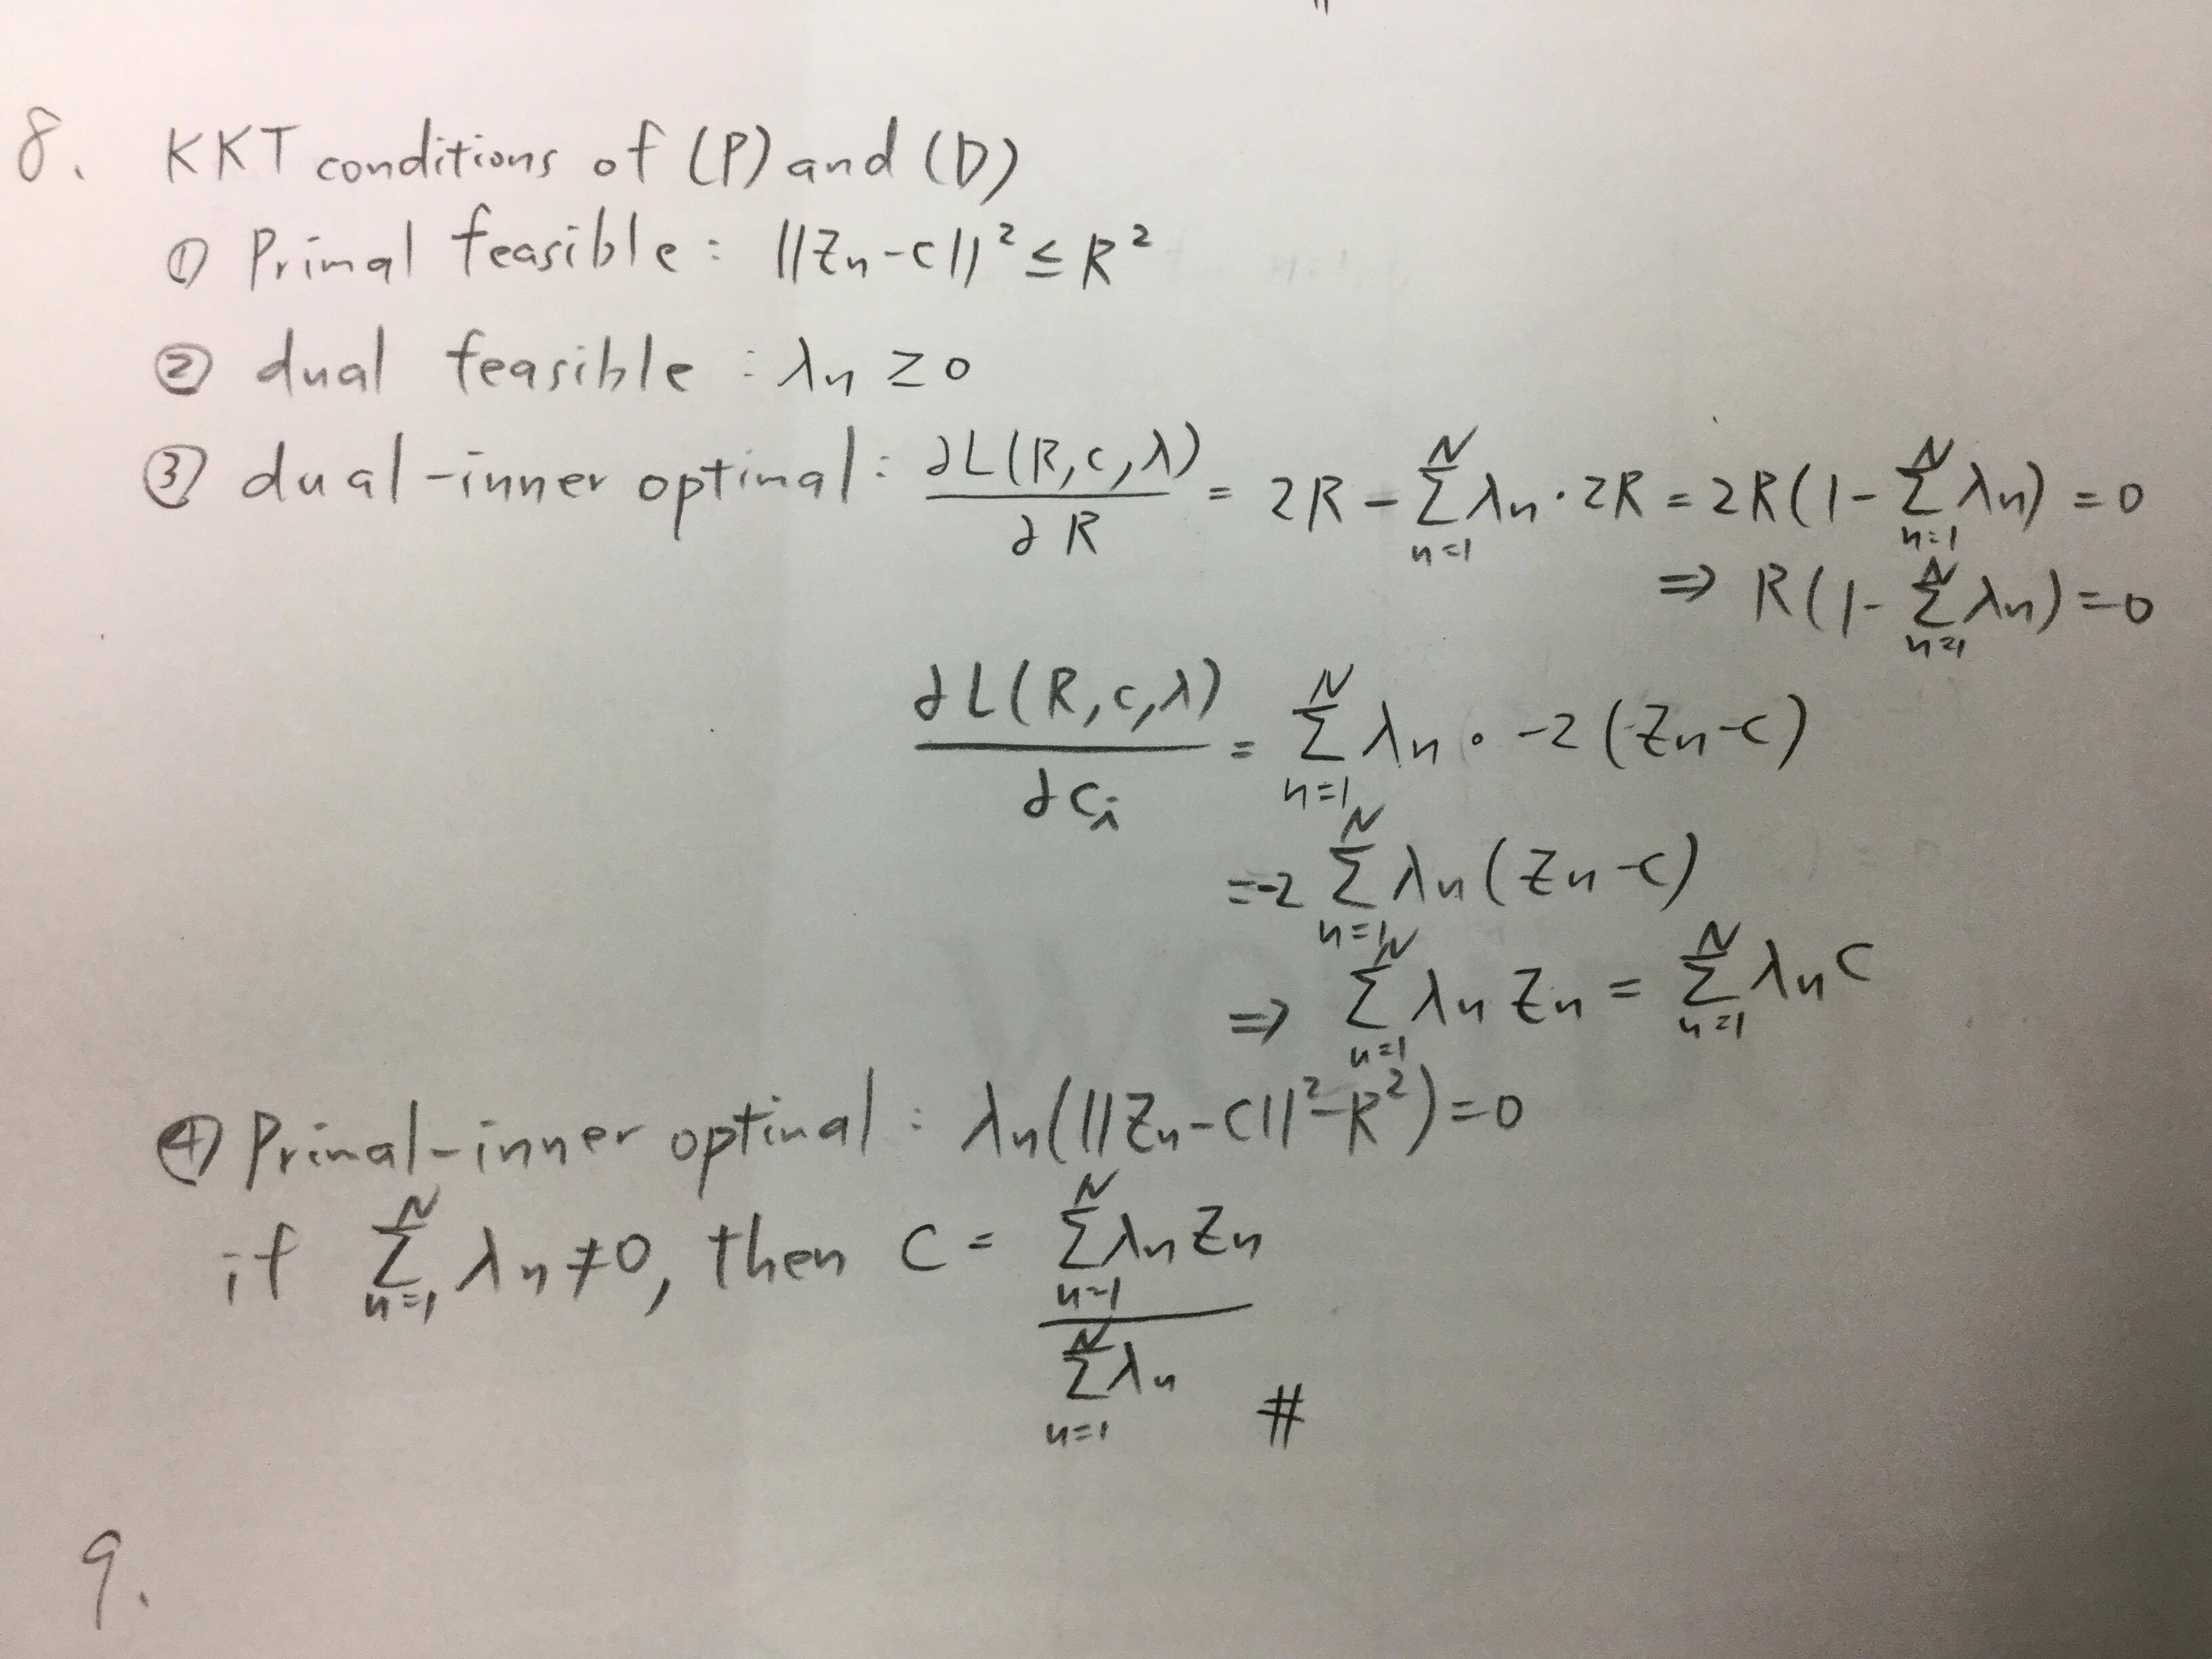 8. KKT conditions of (P) and (D)
① Primal feasible : ||Zn-C||² ≤ R²
② dual feasible : λn ≥ 0
③ dual-inner optimal : ∂L(R,c,λ)/∂R = 2R - Σ_{n=1}^{N} λn · 2R = 2R(1 - Σ_{n=1}^{N} λn) = 0
⇒ R(1 - Σ_{n=1}^{N} λn) = 0
∂L(R,c,λ)/∂ci = Σ_{n=1}^{N} λn · -2(Zn-c)
= -2 Σ_{n=1}^{N} λn (Zn-c)
⇒ Σ_{n=1}^{N} λn Zn = Σ_{n=1}^{N} λn C
④ Primal-inner optimal : λn(||Zn-C||²-R²) = 0
if Σ_{n=1}^{N} λn ≠ 0, then C = Σ_{n=1}^{N} λn Zn / Σ_{n=1}^{N} λn #
9.